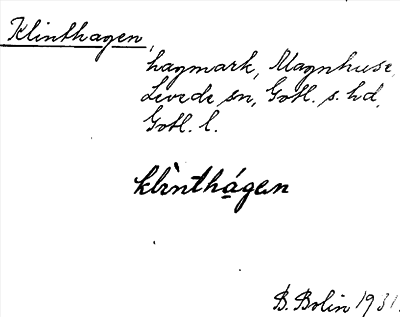 Klinthagen,
hagmark, Magnhuse,
Levede sn, Gotl. s. hd,
Gotl. l.
klı̀nthá̱gen
B. Bolin 1931.